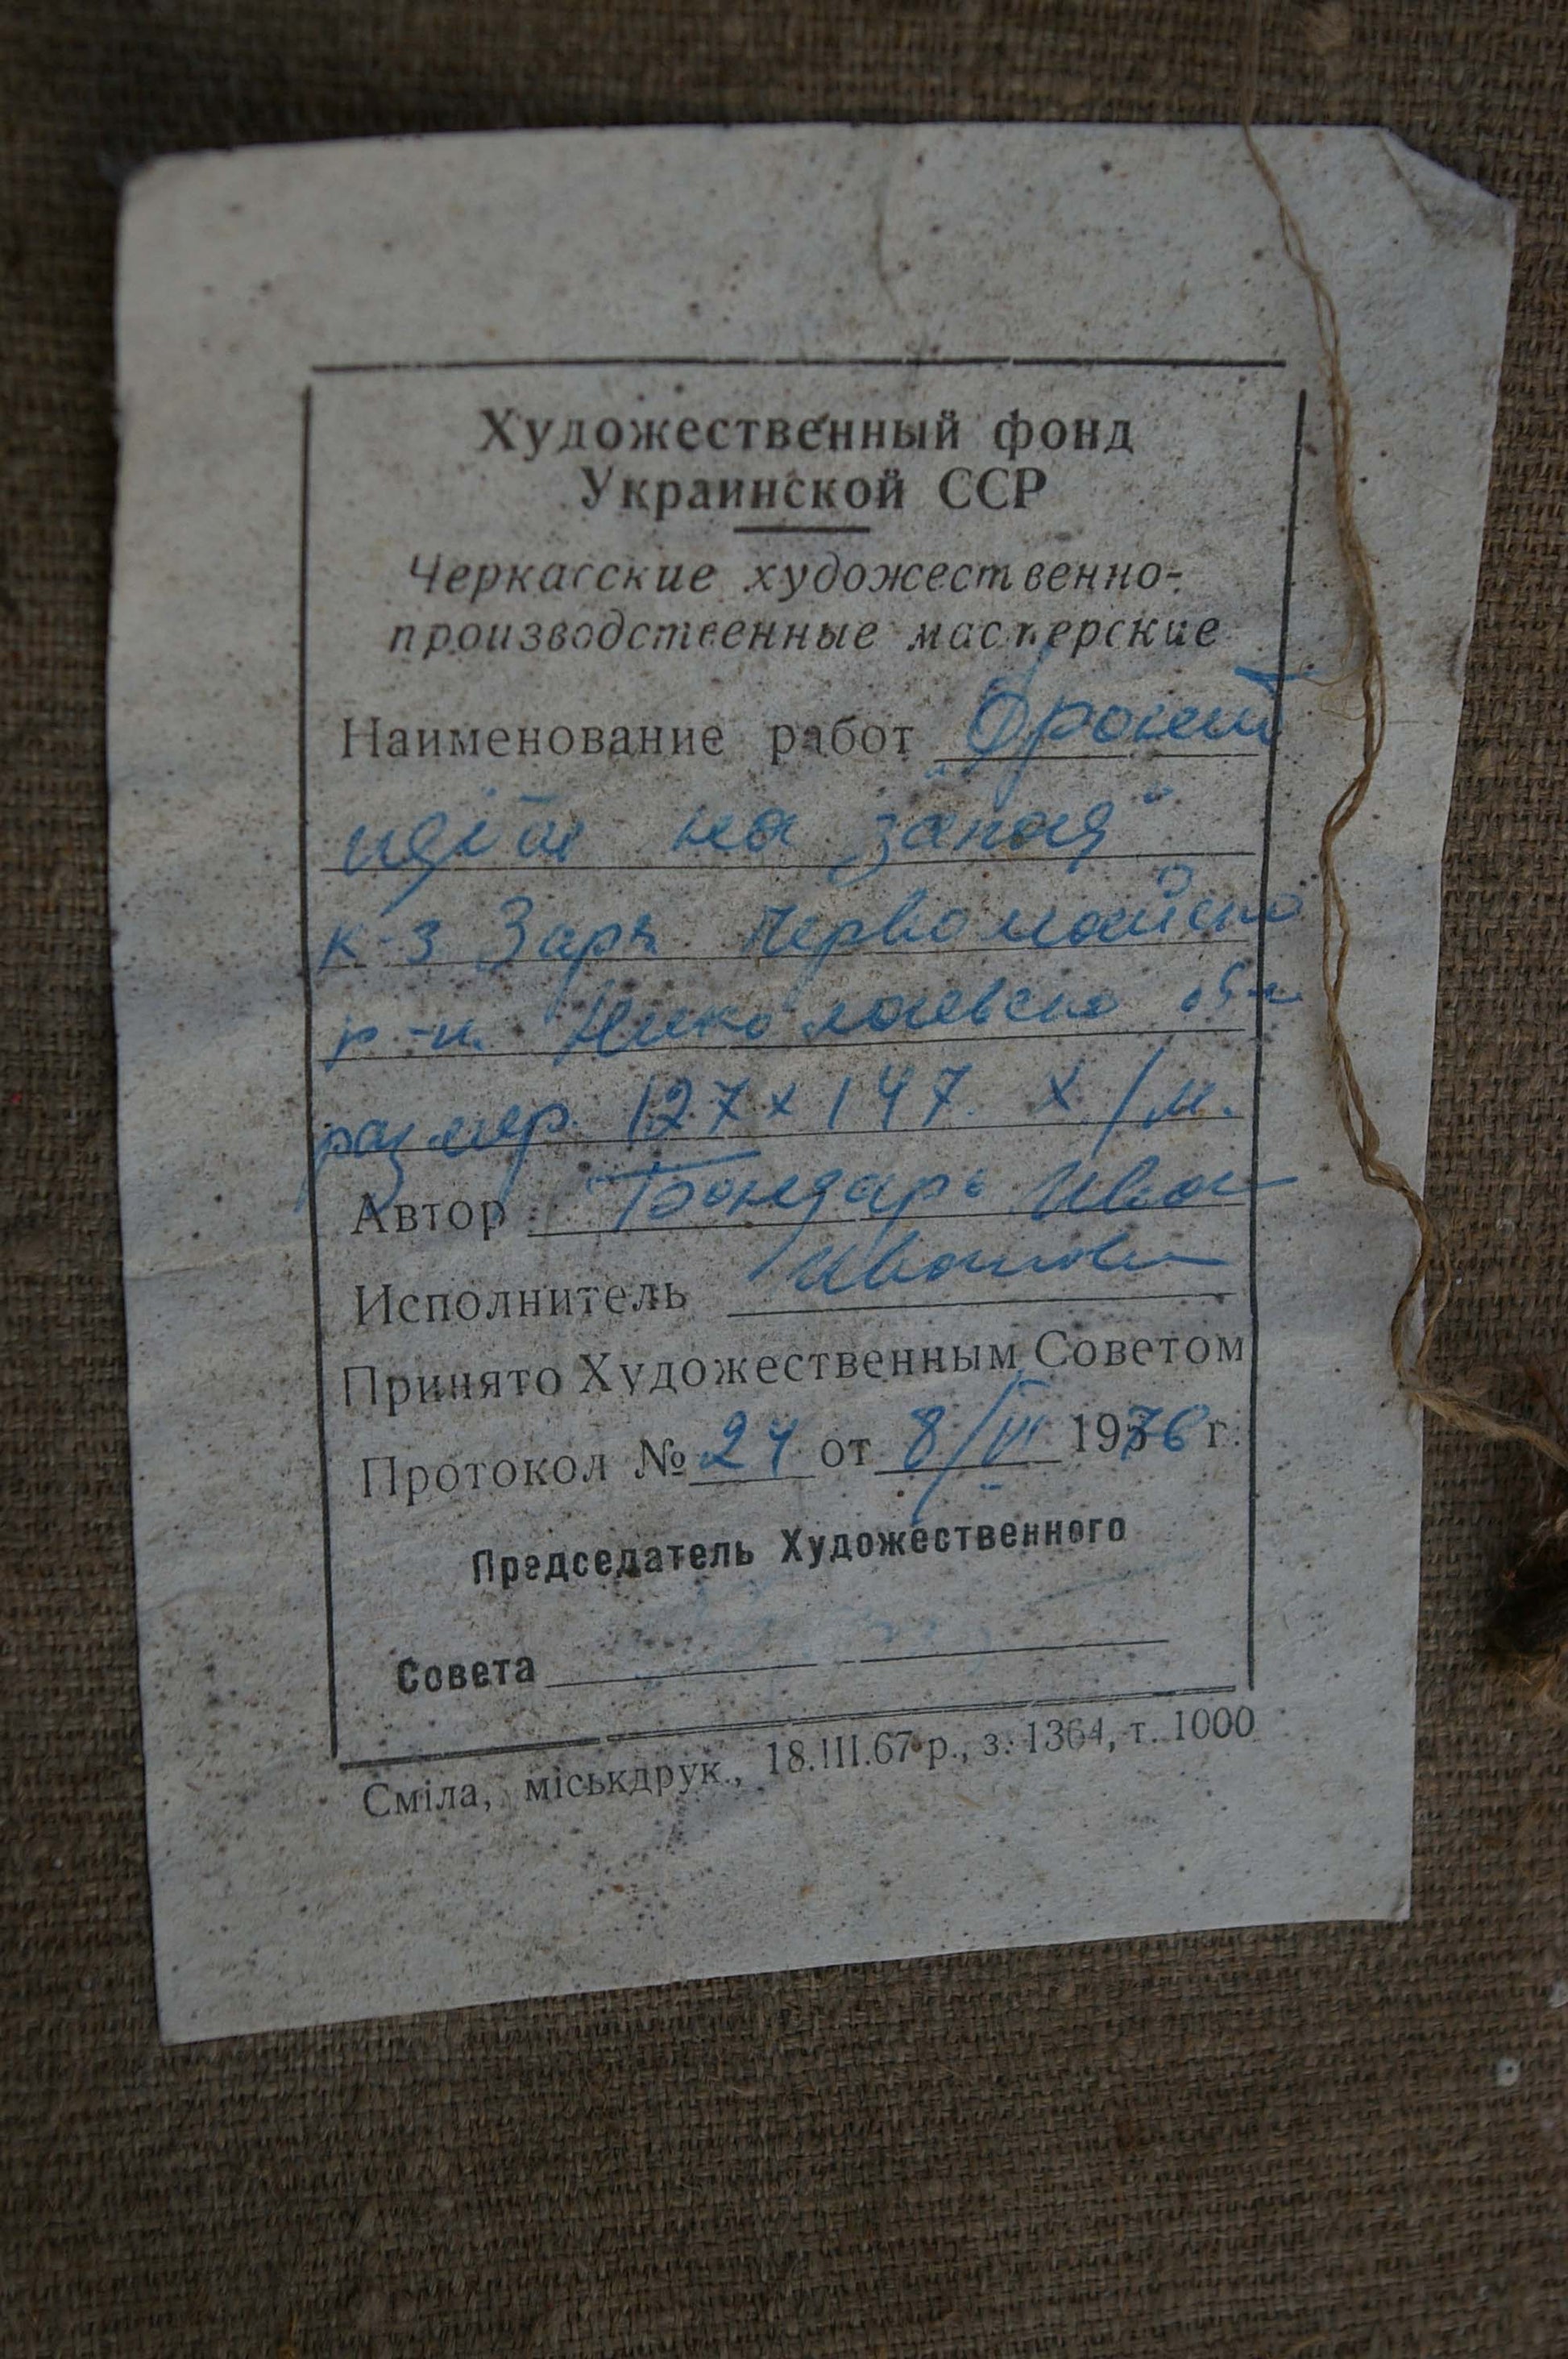 Художественный фонд
Украинской ССР
Черкасские художественно-
производственные мастерские
Наименование работ „Фронт
идёт на запад"
к-з Заря Первомайско
р-н. Николаевско обл
размер. 127 x 147. х/м.
Автор Бондарь Иван
Исполнитель Иванович
Принято Художественным Советом
Протокол № 24 от 8/VI 1976 г.
Председатель Художественного
Совета
Сміла, міськдрук., 18.III.67 р., з. 1364, т. 1000